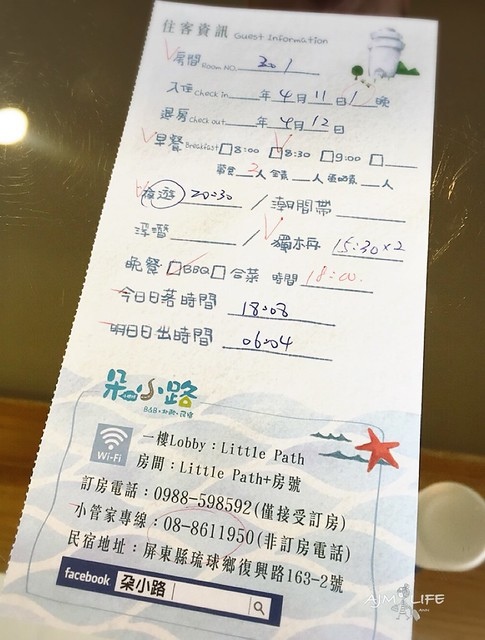 住客資訊 Guest Information
房間 Room NO. 301
入住 check in 年 4月 11日 1晚
退房 check out 年 4月 12日
早餐 Breakfast □8:00 □8:30 □9:00 □
葷食 2人 全素 人 蛋奶素 人
夜遊 20:30 / 潮間帶
浮潛 / 獨木舟 15:30×2
晚餐 □BBQ □合菜 時間 18:00
今日日落時間 18:08
明日日出時間 06:04
朵小路
B&B
Wi-Fi
一樓Lobby:Little Path
房間:Little Path+房號
訂房電話:0988-598592(僅接受訂房)
小管家專線:08-8611950(非訂房電話)
民宿地址:屏東縣琉球鄉復興路163-2號
facebook 朵小路
AJM LIFE